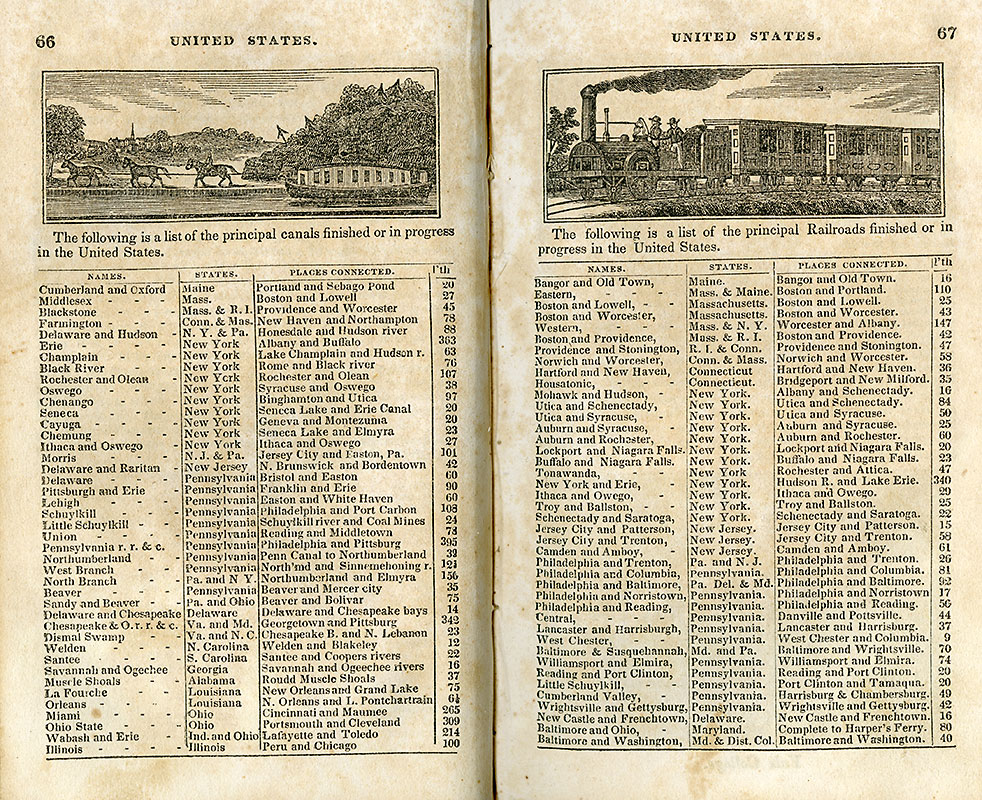 66
UNITED STATES.
The following is a list of the principal canals finished or in progress
in the United States.
NAMES. STATES. PLACES CONNECTED. l'th
Cumberland and Oxford Maine Portland and Sebago Pond 20
Middlesex - - - Mass. Boston and Lowell 27
Blackstone - - - Mass. & R. I. Providence and Worcester 45
Farmington - - - Conn. & Mas. New Haven and Northampton 78
Delaware and Hudson - N. Y. & Pa. Honesdale and Hudson river 88
Erie - - - - New York Albany and Buffalo 363
Champlain - - - New York Lake Champlain and Hudson r. 63
Black River - - - New York Rome and Black river 76
Rochester and Olean - New York Rochester and Olean 107
Oswego - - - New York Syracuse and Oswego 38
Chenango - - - New York Binghamton and Utica 97
Seneca - - - New York Seneca Lake and Erie Canal 20
Cayuga - - - New York Geneva and Montezuma 20
Chemung - - - New York Seneca Lake and Elmyra 23
Ithaca and Oswego - New York Ithaca and Oswego 27
Morris - - - N. J. & Pa. Jersey City and Easton, Pa. 101
Delaware and Raritan - New Jersey N. Brunswick and Bordentown 42
Delaware - - - Pennsylvania Bristol and Easton 60
Pittsburgh and Erie - Pennsylvania Franklin and Erie 90
Lehigh - - - Pennsylvania Easton and White Haven 60
Schuylkill - - - Pennsylvania Philadelphia and Port Carbon 108
Little Schuylkill - - Pennsylvania Schuylkill river and Coal Mines 24
Union - - - Pennsylvania Reading and Middletown 78
Pennsylvania r. r. & c. Pennsylvania Philadelphia and Pittsburg 395
Northumberland - - Pennsylvania Penn Canal to Northumberland 32
West Branch - - Pennsylvania North'md and Sinnemehoning r. 121
North Branch - - Pa. and N Y. Northumberland and Elmyra
Beaver - - - Pennsylvania Beaver and Mercer city 35
Sandy and Beaver - - Pa. and Ohio Beaver and Bolivar 75
Delaware and Chesapeake Delaware Delaware and Chesapeake bays 14
Chesapeake & O. r. r. & c. Va. and Md. Georgetown and Pittsburg 342
Dismal Swamp - - Va. and N. C. Chesapeake B. and N. Lebanon 23
Welden - - - N. Carolina Welden and Blakeley 12
Santee - - - S. Carolina Santee and Coopers rivers 22
Savannah and Ogechee Georgia Savannah and Ogeechee rivers 16
Muscle Shoals - - Alabama Roudd Muscle Shoals 37
La Fourche - - Louisiana New Orleans and Grand Lake 75
Orleans - - - Louisiana N. Orleans and L. Pontchartrain
Miami - - - Ohio Cincinnati and Maumee 265
Ohio State - - - Ohio Portsmouth and Cleveland 309
Wabash and Erie - Ind. and Ohio Lafayette and Toledo 214
Illinois - - - - Illinois Peru and Chicago 100
67
UNITED STATES.
The following is a list of the principal Railroads finished or in
progress in the United States.
NAMES. STATES. PLACES CONNECTED. l'th
Bangor and Old Town, Maine. Bangor and Old Town. 16
Eastern, - - - Mass. & Maine. Boston and Portland. 110
Boston and Lowell, - - Massachusetts. Boston and Lowell. 25
Boston and Worcester, Massachusetts. Boston and Worcester. 43
Western, - - - Mass. & N. Y. Worcester and Albany. 147
Boston and Providence, Mass. & R. I. Boston and Providence. 42
Providence and Stonington, R. I. & Conn. Providence and Stonington. 47
Norwich and Worcester, Conn. & Mass. Norwich and Worcester. 58
Hartford and New Haven, Connecticut Hartford and New Haven. 36
Housatonic, - - - Connecticut. Bridgeport and New Milford. 35
Mohawk and Hudson, - New York. Albany and Schenectady. 16
Utica and Schenectady, New York. Utica and Schenectady. 84
Utica and Syracuse, - New York. Utica and Syracuse. 50
Auburn and Syracuse, - New York. Auburn and Syracuse. 25
Auburn and Rochester, New York. Auburn and Rochester. 60
Lockport and Niagara Falls. New York. Lockport and Niagara Falls. 20
Buffalo and Niagara Falls. New York. Buffalo and Niagara Falls. 23
Tonawanda, - - New York. Rochester and Attica. 47
New York and Erie, - New York. Hudson R. and Lake Erie. 340
Ithaca and Owego, - New York. Ithaca and Owego. 29
Troy and Ballston, - New York. Troy and Ballston. 25
Schenectady and Saratoga, New York. Schenectady and Saratoga. 22
Jersey City and Patterson, New Jersey. Jersey City and Patterson. 15
Jersey City and Trenton, New Jersey. Jersey City and Trenton. 58
Camden and Amboy, - New Jersey. Camden and Amboy. 61
Philadelphia and Trenton, Pa. and N. J. Philadelphia and Trenton. 26
Philadelphia and Columbia, Pennsylvania. Philadelphia and Columbia. 81
Philadelphia and Baltimore, Pa. Del. & Md. Philadelphia and Baltimore. 92
Philadelphia and Norristown, Pennsylvania. Philadelphia and Norristown 17
Philadelphia and Reading, Pennsylvania. Philadelphia and Reading. 56
Central, - - - Pennsylvania. Danville and Pottsville. 44
Lancaster and Harrisburgh, Pennsylvania. Lancaster and Harrisburg. 37
West Chester, - - Pennsylvania. West Chester and Columbia. 9
Baltimore & Susquehannah, Md. and Pa. Baltimore and Wrightsville. 70
Williamsport and Elmira, Pennsylvania. Williamsport and Elmira. 74
Reading and Port Clinton, Pennsylvania. Reading and Port Clinton. 20
Little Schuylkill, - - Pennsylvania. Port Clinton and Tamaqua. 20
Cumberland Valley, - Pennsylvania. Harrisburg & Chambersburg. 49
Wrightsville and Gettysburg, Pennsylvania. Wrightsville and Gettysburg. 42
New Castle and Frenchtown, Delaware. New Castle and Frenchtown. 16
Baltimore and Ohio, - Maryland. Complete to Harper's Ferry. 80
Baltimore and Washington, Md. & Dist. Col. Baltimore and Washington. 40